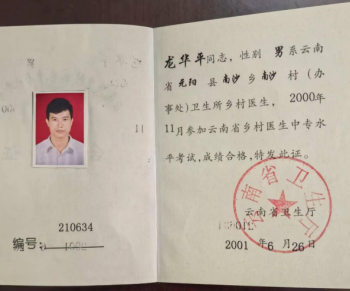 210634
编号:
龙华平同志，性别 男系云南
省元阳 县南沙乡南沙 村（办
事处)卫生所乡村医生，2000年
11月参加云南省乡村医生中专水
平考试，成绩合格，特发此证。
云南省卫生厅
云南省卫生厅
2001 年6 月26日